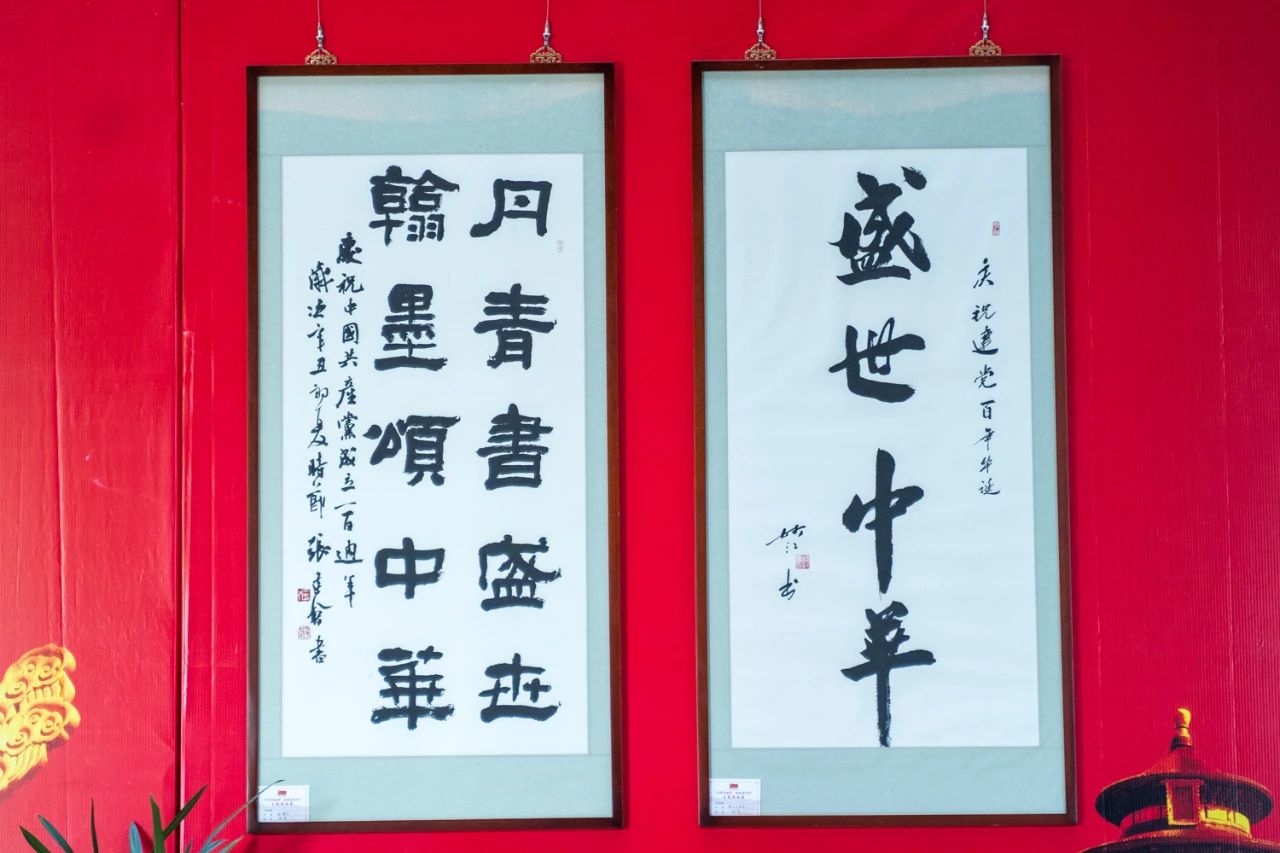 丹青書盛世
翰墨頌中華
慶祝中國共產黨成立一百週年
歲次辛丑初夏時節 張 書
庆祝建党百年华诞
盛世中華
书